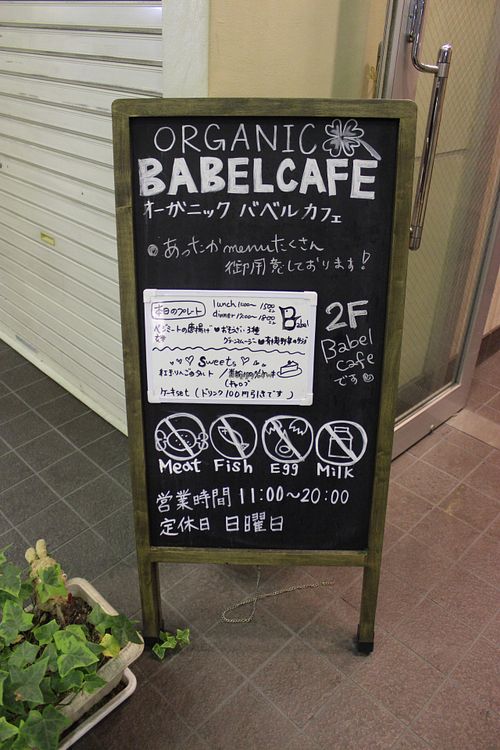 ORGANIC
BABELCAFE
オーガニック バベル カフェ
あったか menu たくさん
御用意しております!
本日のプレート
lunch 11:00〜 1500
dinner 17:00〜 1800
Babel
ベジミートの唐揚げ
おもうさい 3種
玄米
Sweets
紅玉りんごのタルト
ケーキset (ドリンク100円引きです)
2F
Babel
cafe
です
Meat Fish Egg Milk
営業時間 11:00〜20:00
定休日 日曜日